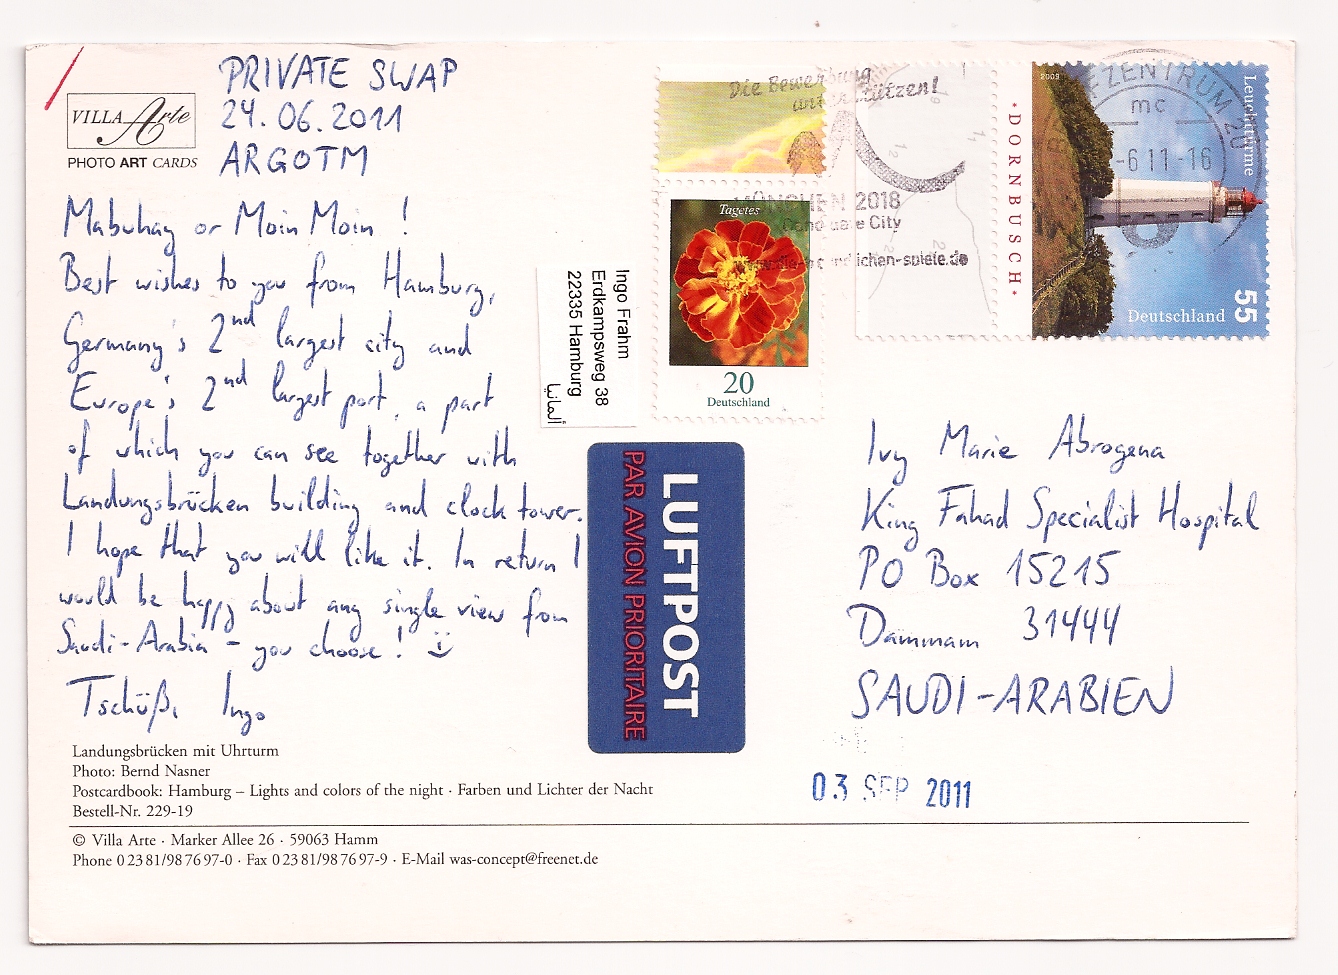 PRIVATE SWAP
24.06.2011
ARGOTM
VILLA Arte
PHOTO ART CARDS
Mabuhay or Moin Moin !
Best wishes to you from Hamburg,
Germany's 2nd largest city and
Europe's 2nd largest port, a part
of which you can see together with
Landungsbrücken building and clock tower.
I hope that you will like it. In return I
would be happy about any single view from
Saudi-Arabia - you choose!
Tschüß, Ingo
Landungsbrücken mit Uhrturm
Photo: Bernd Nasner
Postcardbook: Hamburg – Lights and colors of the night · Farben und Lichter der Nacht
Bestell-Nr. 229-19
© Villa Arte · Marker Allee 26 · 59063 Hamm
Phone 0 23 81/98 76 97-0 · Fax 0 23 81/98 76 97-9 · E-Mail was-concept@freenet.de
Ingo Frahm
Erdkampsweg 38
22335 Hamburg
ألمانيا
LUFTPOST
PAR AVION PRIORITAIRE
Die Bewerbung
unterstützen!
MÜNCHEN 2018
City
Tagetes
20
Deutschland
DORNBUSCH
2009
Leuchttürme
Deutschland
55
BRIEFZENTRUM 20
mc
-6 11-16
Ivy Marie Abrogena
King Fahad Specialist Hospital
PO Box 15215
Dammam 31444
SAUDI-ARABIEN
03 SEP 2011